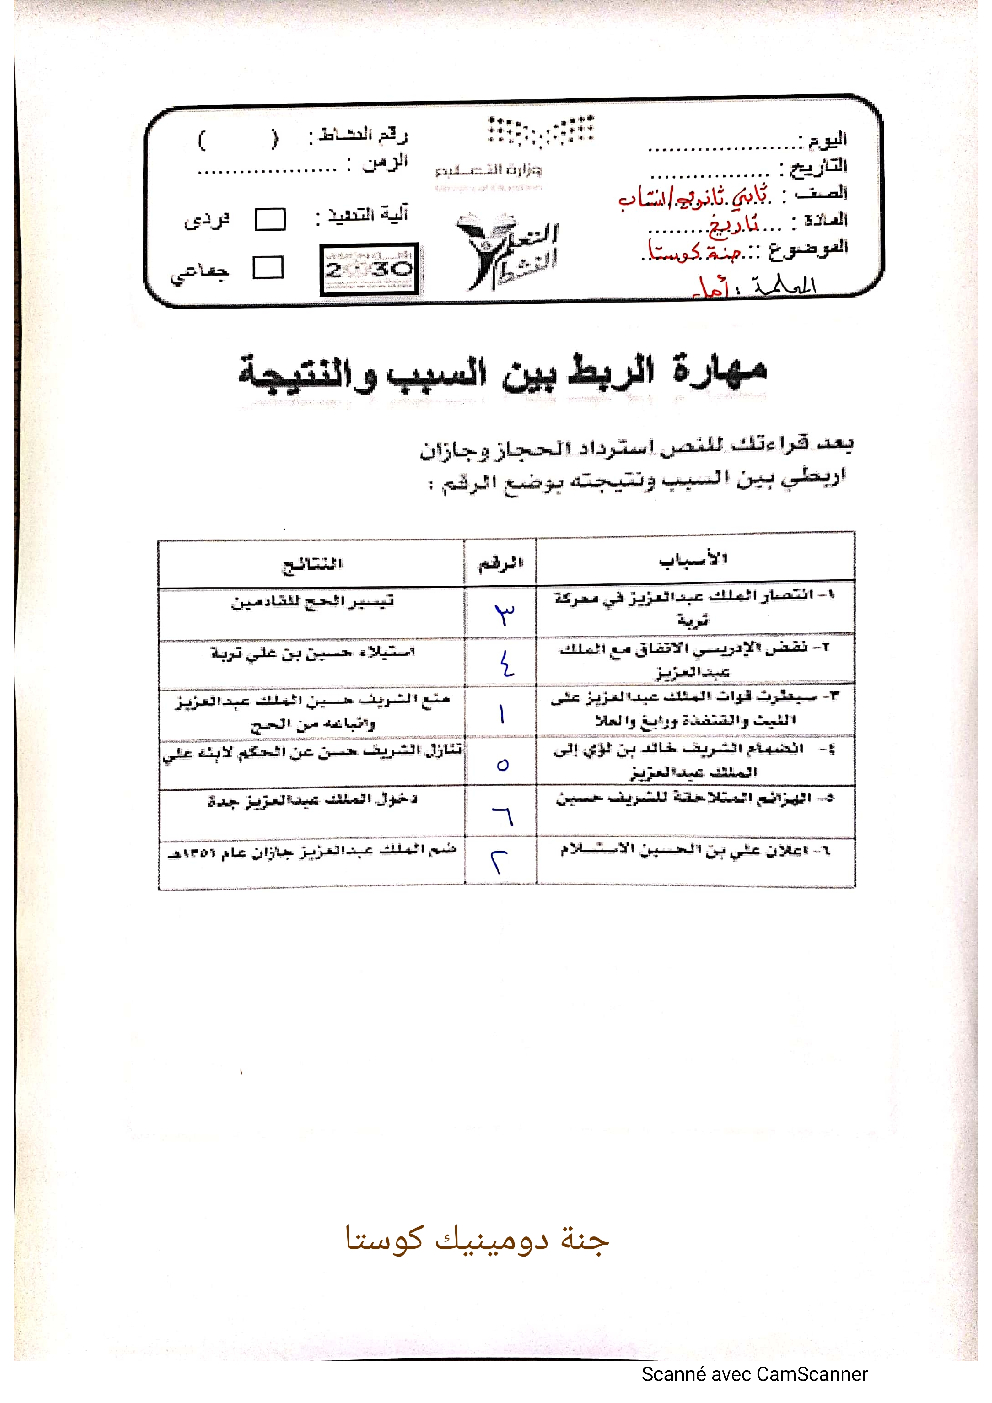 اليوم :......................
التاريخ : ..................
الصف : ثاني ثانوي/انتساب
المادة : ... تاريخ.........
الموضوع ::..جنة كوستا.
المعلمة : أمل
وزارة التعليم
Ministry of Education
التعلم
النشط
رقم النشاط : ( )
الزمن : ....................
آلية التنفيذ : فردى
جماعي
2030
مهارة الربط بين السبب والنتيجة
بعد قراءتك للنص استرداد الحجاز وجازان
اربطي بين السبب ونتيجته بوضع الرقم :
الأسباب الرقم النتائج
١- انتصار الملك عبدالعزيز في معركة تربة ٣ تيسير الحج للقادمين
٢- نقض الإدريسي الاتفاق مع الملك عبدالعزيز ٤ استيلاء حسين بن علي تربة
٣- سيطرت قوات الملك عبدالعزيز على الليث والقنفذة ورابغ والعلا ١ منع الشريف حسين الملك عبدالعزيز واتباعه من الحج
٤- انضمام الشريف خالد بن لؤي إلى الملك عبدالعزيز ٥ تنازل الشريف حسن عن الحكم لابنه علي
٥- الهزائم المتلاحقة للشريف حسين ٦ دخول الملك عبدالعزيز جدة
٦- اعلان علي بن الحسين الاستسلام ٢ ضم الملك عبدالعزيز جازان عام ١٣٥١هـ
جنة دومينيك كوستا
Scanné avec CamScanner